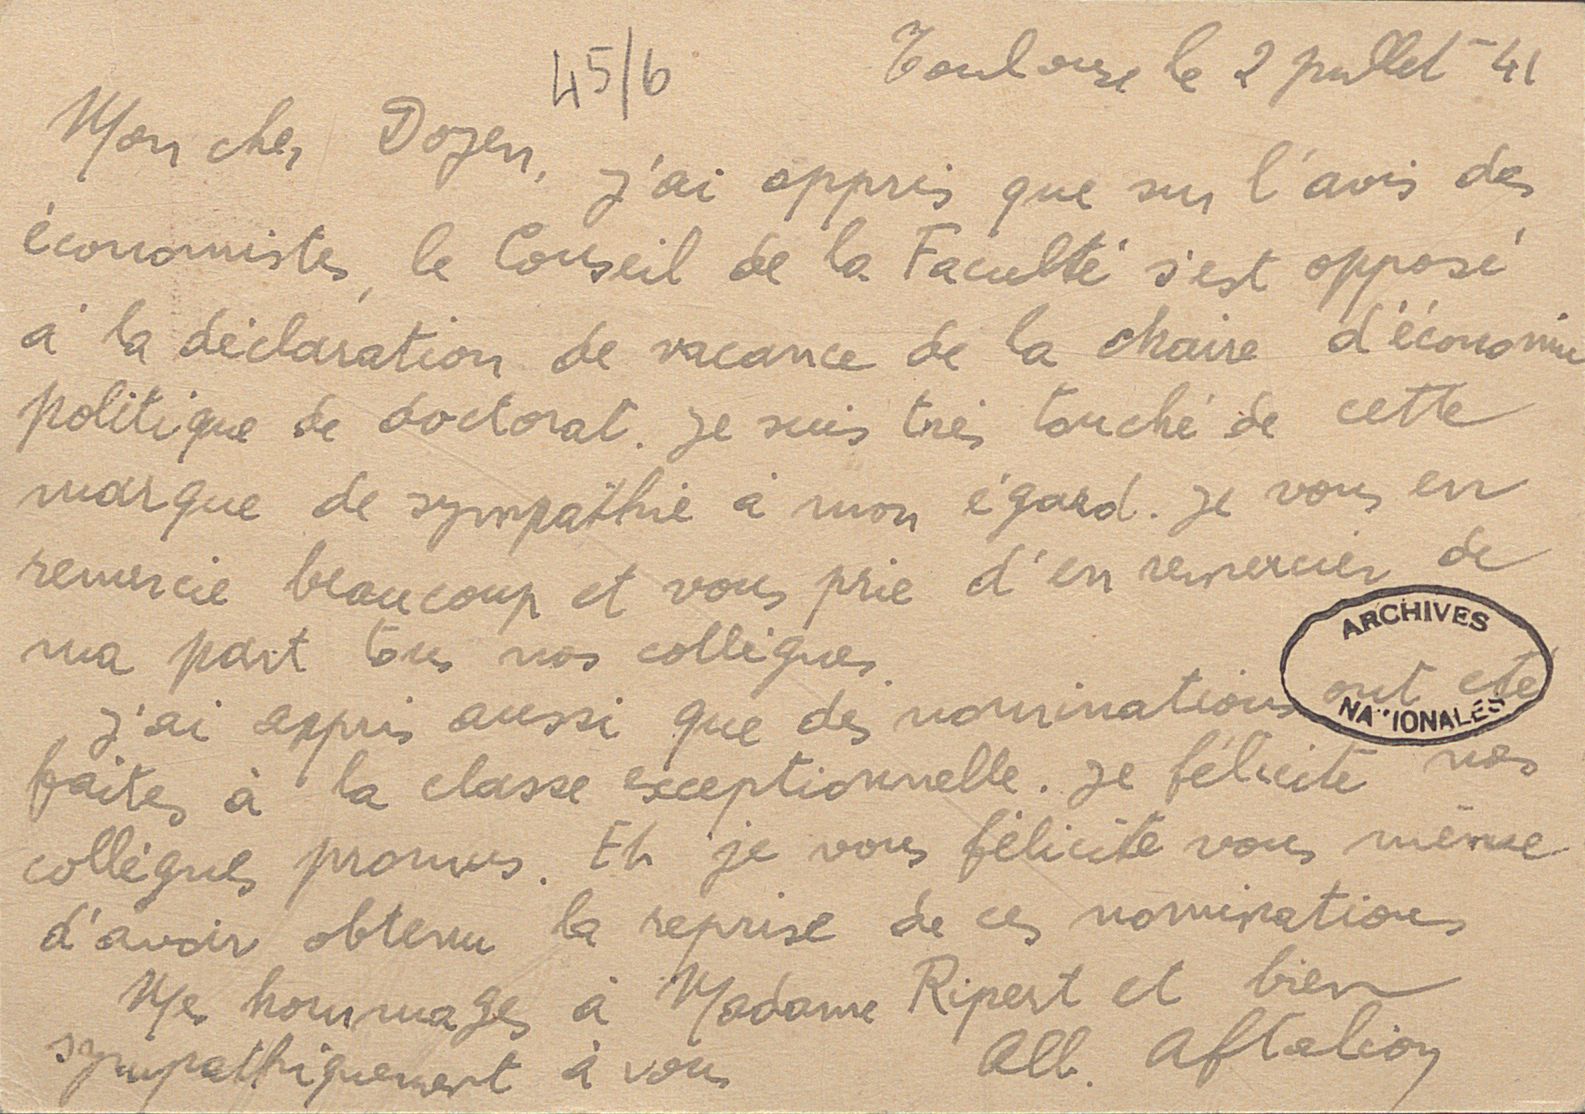 45/6
Toulouse le 2 juillet - 41
Mon cher Doyen,
J'ai appris que sur l'avis des
économistes, le Conseil de la Faculté s'est opposé
à la déclaration de vacance de la chaire d'économie
politique de doctorat. Je suis très touché de cette
marque de sympathie à mon égard. Je vous en
remercie beaucoup et vous prie d'en remercier de
ma part tous nos collègues.
J'ai appris aussi que des nominations ont été
faites à la classe exceptionnelle. Je félicite nos
collègues promus. Et je vous félicite vous même
d'avoir obtenu la reprise de ces nominations
Mes hommages à Madame Ripert et bien
sympathiquement à vous
Alb. Aftalion
ARCHIVES
NATIONALES